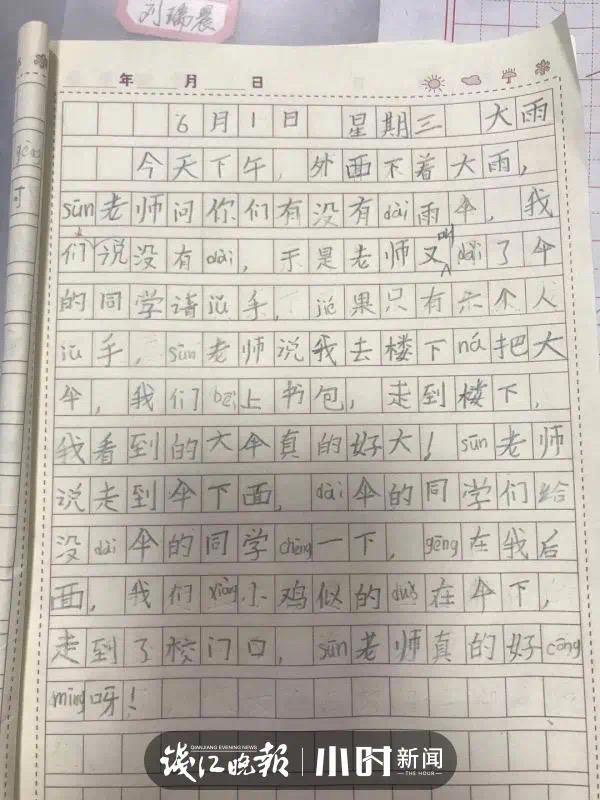 刘瑞晨
年 月 日
6月1日 星期三 大雨
今天下午，外面下着大雨，
sūn老师问你们有没有dài雨伞，我
们说没有dài，于是老师又叫dài了伞
的同学请jǔ手，jié果只有六个人
jǔ手，sūn老师说我去楼下ná把大
伞，我们bēi上书包，走到楼下，
我看到的大伞真的好大！sūn老师
说走到伞下面，dài伞的同学们给
没dài伞的同学chēng一下，gēng在我后
面，我们xiàng小鸡似的duǒ在伞下，
走到了校门口，sūn老师真的好cōng
míng呀！
钱江晚报 QIANJIANG EVENING NEWS 小时新闻 THE HOUR